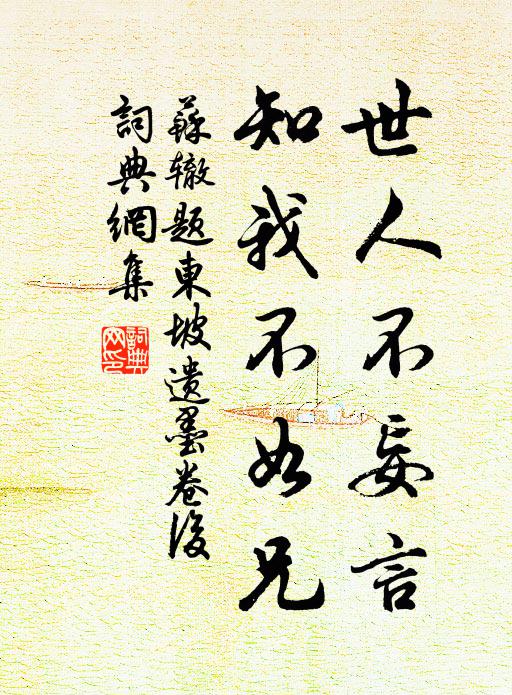 世人不妄言
知我不如兄
蘇辙題東坡遺墨卷後
詞典網集
詞典網印